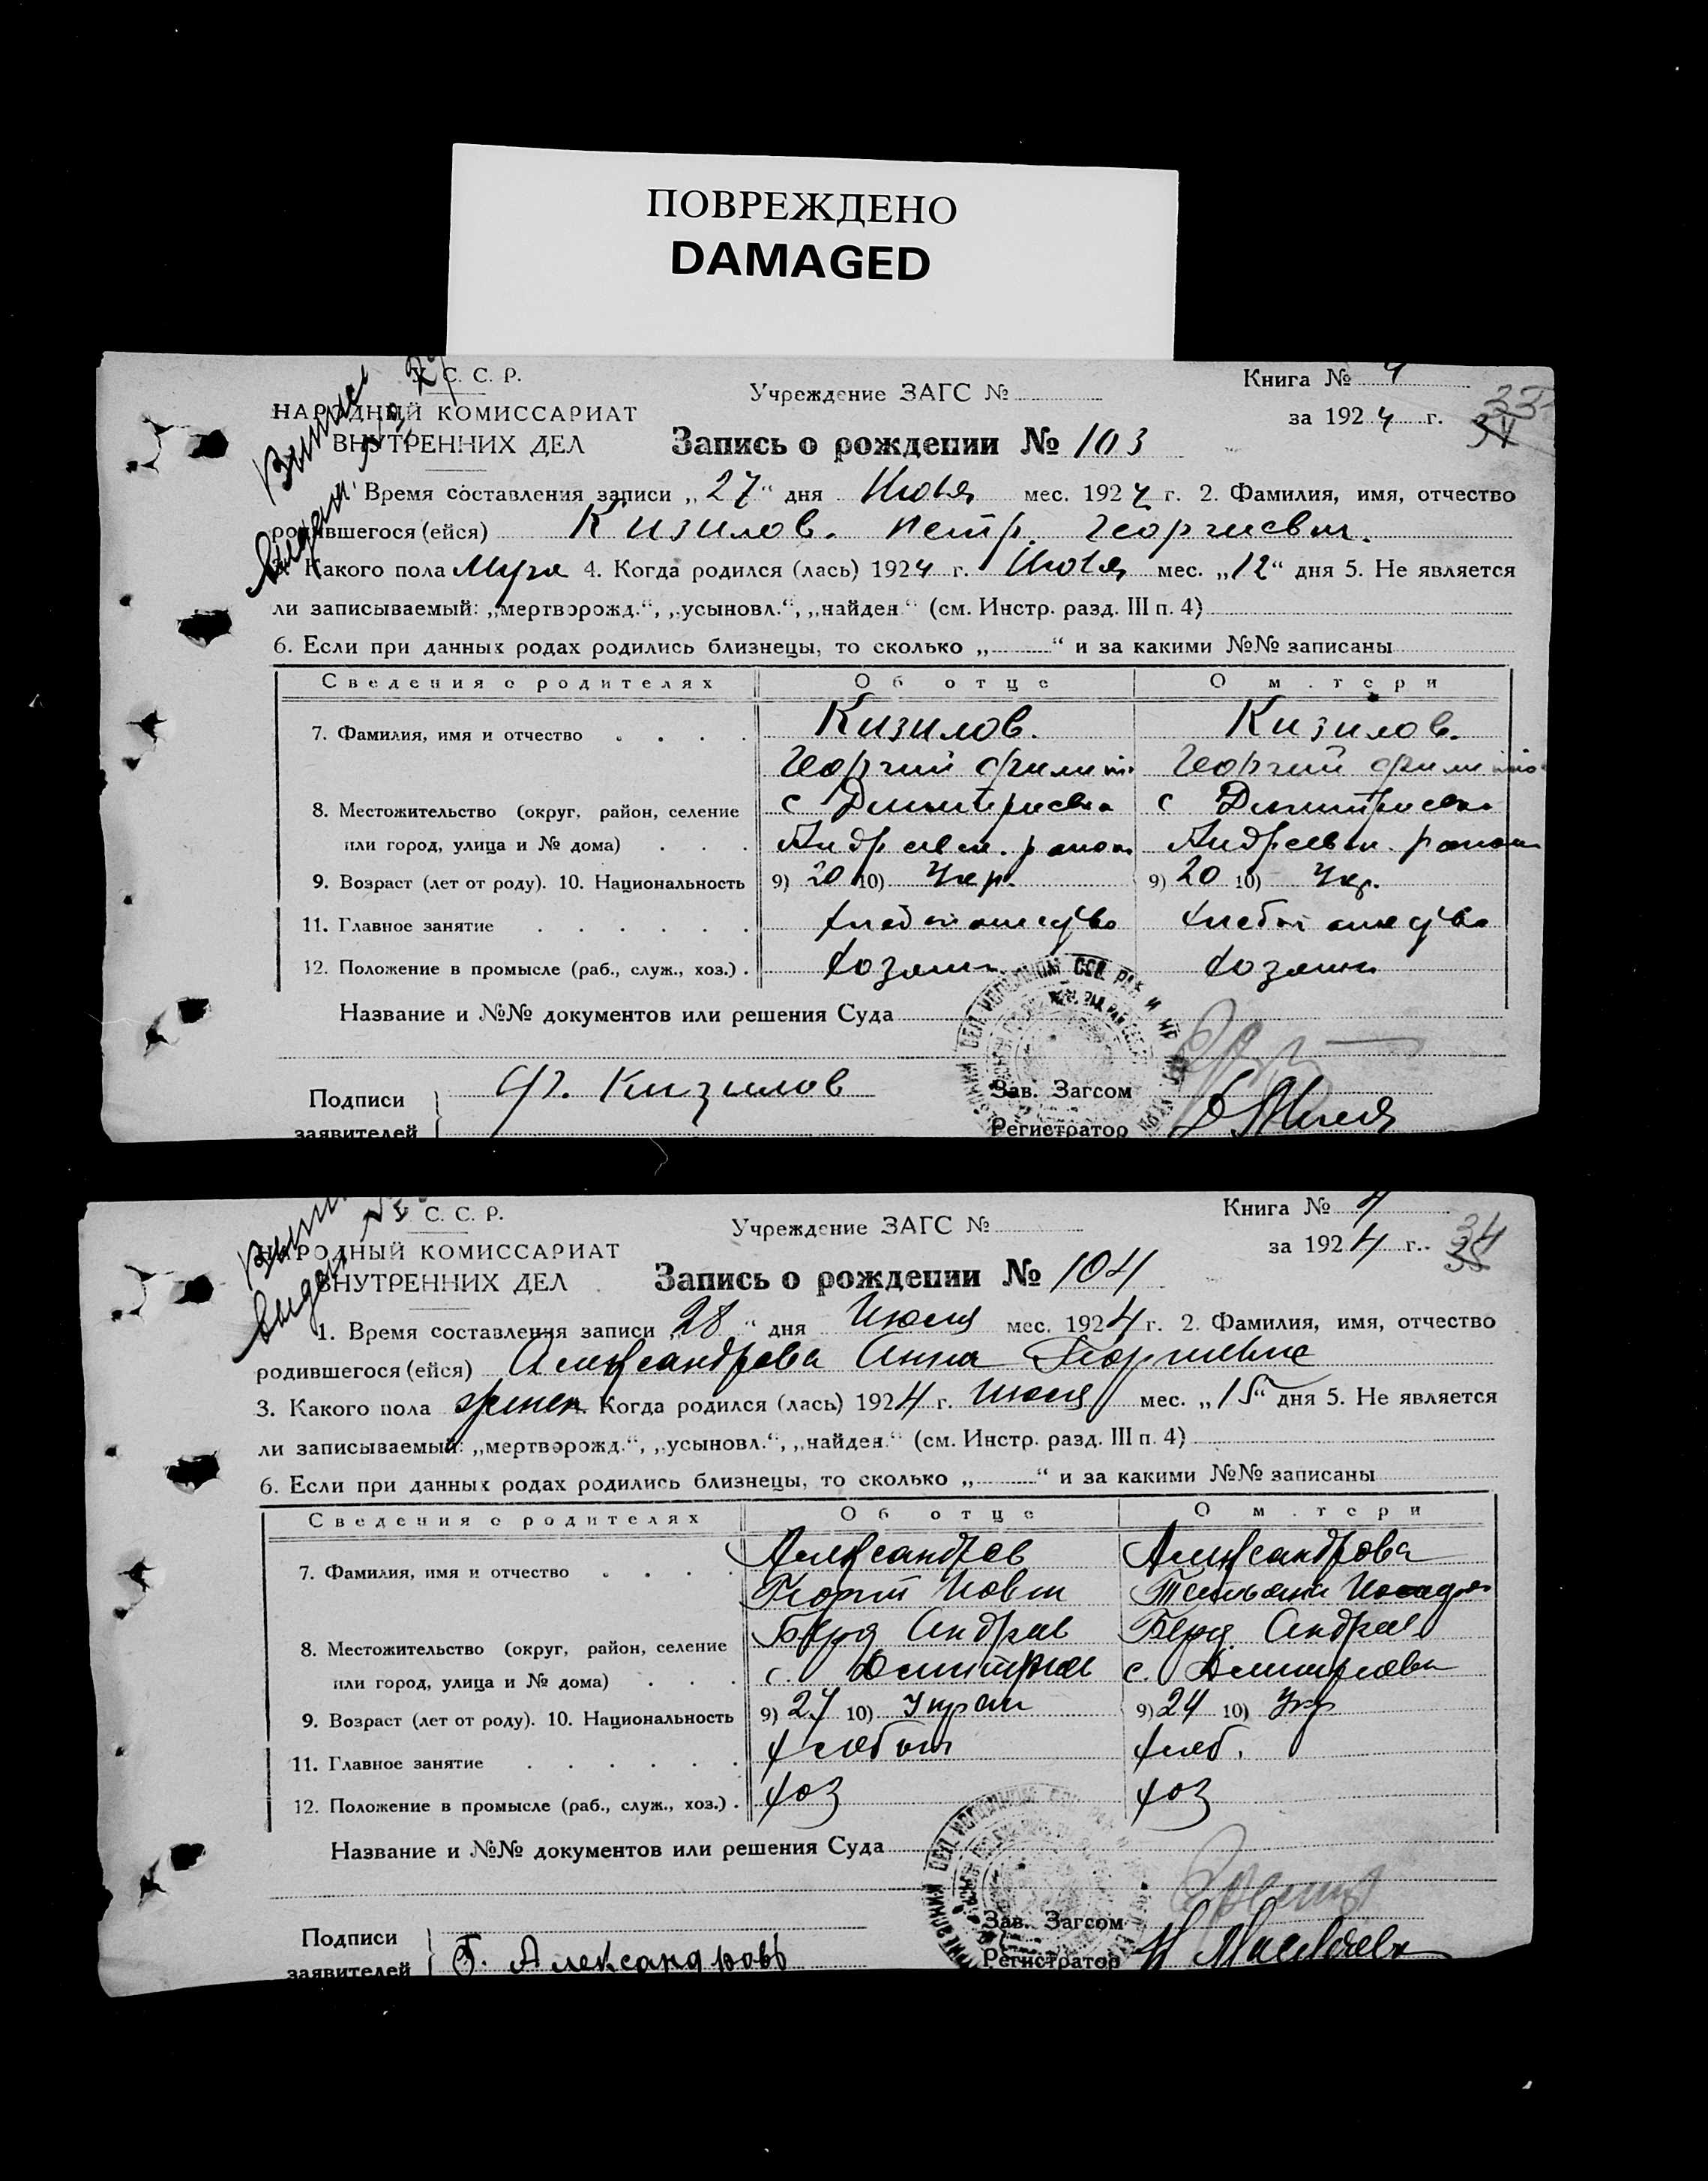 ПОВРЕЖДЕНО
DAMAGED
С. С. Р.
НАРОДНЫЙ КОМИССАРИАТ
ВНУТРЕННИХ ДЕЛ
Учреждение ЗАГС №
Книга № 4
за 1924 г.
33
34
Запись о рождении № 103
1. Время составления записи „27“ дня Июля мес. 1924 г. 2. Фамилия, имя, отчество
родившегося (ейся) Кизилов. Петр. Георгиевич.
3. Какого пола Муж 4. Когда родился (лась) 1924 г. Июля мес. „12“ дня 5. Не является
ли записываемый: „мертворожд.“, „усыновл.“, „найден.“ (см. Инстр. разд. III п. 4)
6. Если при данных родах родились близнецы, то сколько „ “ и за какими №№ записаны
Сведения о родителях Об отце О м.тери
7. Фамилия, имя и отчество Кизилов. Кизилов.
Георгий Георгий
8. Местожительство (округ, район, селение с Дмитриевка с Дмитриевка
или город, улица и № дома) Андреевск. район Андреевск. район
9. Возраст (лет от роду). 10. Национальность 9) 20 10) Укр. 9) 20 10) Укр.
11. Главное занятие
12. Положение в промысле (раб., служ., хоз.) Хозяин Хозяин
Название и №№ документов или решения Суда
Подписи Кизилов Зав. Загсом
заявителей Регистратор
С. С. Р.
НАРОДНЫЙ КОМИССАРИАТ
ВНУТРЕННИХ ДЕЛ
Учреждение ЗАГС №
Книга № 4
за 1924 г.
34
35
Запись о рождении № 104
1. Время составления записи „28“ дня Июля мес. 1924 г. 2. Фамилия, имя, отчество
родившегося (ейся) Александрова Анна Георгиевна
3. Какого пола женск. Когда родился (лась) 1924 г. Июля мес. „15“ дня 5. Не является
ли записываемый: „мертворожд.“, „усыновл.“, „найден.“ (см. Инстр. разд. III п. 4)
6. Если при данных родах родились близнецы, то сколько „ “ и за какими №№ записаны
Сведения о родителях Об отце О м.тери
7. Фамилия, имя и отчество Александров Александрова
Георги Татьяна
8. Местожительство (округ, район, селение Берд Андреев Берд. Андреев
или город, улица и № дома) с. Дмитриев с. Дмитриевка
9. Возраст (лет от роду). 10. Национальность 9) 27 10) Украи 9) 24 10) Укр
11. Главное занятие Хлебоп Хлеб.
12. Положение в промысле (раб., служ., хоз.) Хоз Хоз
Название и №№ документов или решения Суда
Подписи Зав. Загсом
заявителей Г. Александров Регистратор